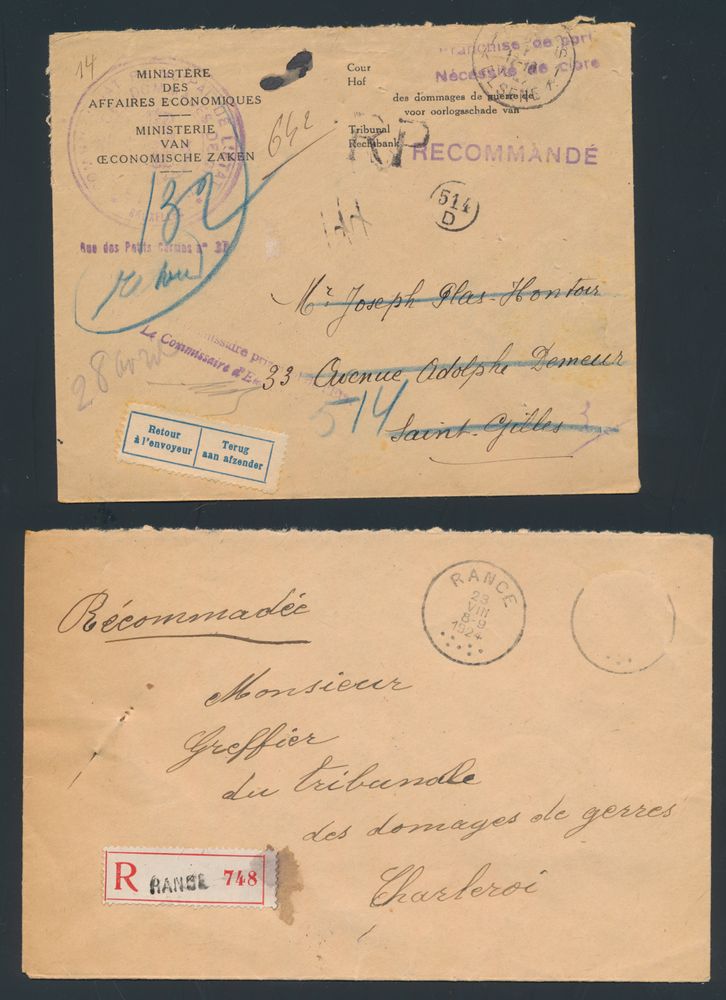 14
MINISTÈRE
DES
AFFAIRES ECONOMIQUES
MINISTERIE
VAN
ŒCONOMISCHE ZAKEN
Cour
Hof
des dommages de guerre de
voor oorlogsschade van
Tribunal
Rechtbank
Franchise de port
Nécessité de clore
RP
RECOMMANDÉ
642
132
514
D
Rue des Petits Carmes n°
retour
Mr Joseph Plas-Hontoir
Le Commissaire d'E
33 Avenue Adolphe Demeur
28 avril
514
Saint-Gilles
Retour
à l'envoyeur
Terug
aan afzender
RANCE
23
VIII
8-9
1924
Récommadée
Monsieur
Greffier
du tribunale
des domages de gerres
Charleroi
R RANCE 748